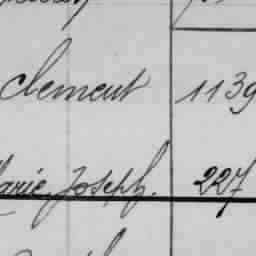 Clement 1139
Marie Joseph. 227